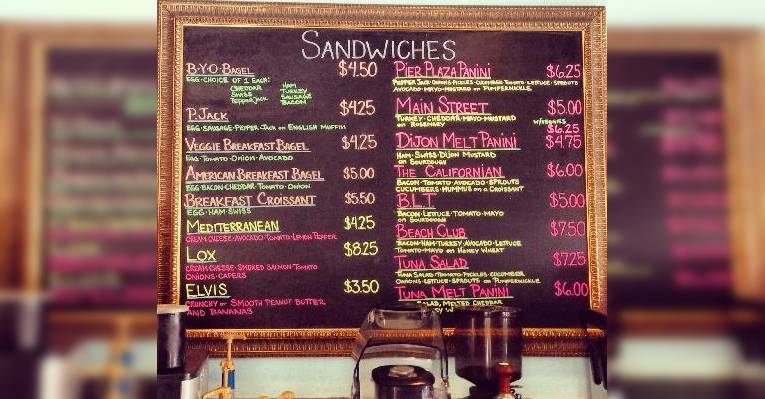 SANDWICHES
B·Y·O·BAGEL $4.50
EGG·CHOICE OF 1 EACH:
CHEDDAR HAM
SWISS TURKEY
PEPPER JACK SAUSAGE
BACON
P.JACK $4.25
EGG·SAUSAGE·PEPPER JACK ON ENGLISH MUFFIN
VEGGIE BREAKFAST BAGEL $4.25
EGG·TOMATO·ONION·AVOCADO
AMERICAN BREAKFAST BAGEL $5.00
EGG·BACON·CHEDDAR·TOMATO·ONION
BREAKFAST CROISSANT $5.50
EGG·HAM·SWISS
MEDITERRANEAN $4.25
CREAM CHEESE·AVOCADO·TOMATO·LEMON PEPPER
LOX $8.25
CREAM CHEESE·SMOKED SALMON·TOMATO
ONIONS·CAPERS
ELVIS $3.50
CRUNCHY OR SMOOTH PEANUT BUTTER
AND BANANAS
PIER PLAZA PANINI $6.25
PEPPER JACK·ONIONS·PICKLES·CUCUMBER·TOMATO·LETTUCE·SPROUTS
AVOCADO·MAYO·MUSTARD ON PUMPERNICKLE
MAIN STREET $5.00
TURKEY·CHEDDAR·MAYO·MUSTARD W/VEGGIES
ON ROSEMARY $6.25
DIJON MELT PANINI $4.75
HAM·SWISS·DIJON MUSTARD
ON SOURDOUGH
THE CALIFORNIAN $6.00
BACON·TOMATO·AVOCADO·SPROUTS
CUCUMBERS·HUMMUS ON A CROISSANT
B.L.T. $5.00
BACON·LETTUCE·TOMATO·MAYO
ON SOURDOUGH
BEACH CLUB $7.50
BACON·HAM·TURKEY·AVOCADO·LETTUCE
TOMATO·MAYO ON HONEY WHEAT
TUNA SALAD $7.25
TUNA SALAD·TOMATO·PICKLES·CUCUMBER
ONIONS·LETTUCE·SPROUTS ON PUMPERNICKLE
TUNA MELT PANINI $6.00
SALAD, MELTED CHEDDAR